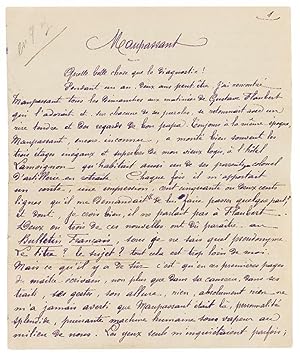 1
Maupassant
Quelle belle chose que le diagnostic !
Pendant un an, deux ans peut être, j'ai rencontré
Maupassant tous les dimanches aux matinées de Gustave Flaubert
qui l'adorait et, sur chacune de ses paroles, se retournait avec un
rire tendre et des regards de bon papa. Toujours à la même époque,
Maupassant, encore inconnu, a monté bien souvent les
trois étages exigus et superbes de mon vieux logis à l'hôtel
Lamoignon qu'habitait aussi un de ses parents, colonel
d'artillerie en retraite. Chaque fois il m'apportait
un conte, une impression, cent cinquante ou deux cents
lignes qu'il me demandait de faire passer quelque part
et dont, je crois bien, il ne parlait pas à Flaubert.
Deux ou trois de ces nouvelles ont dû paraître au
Bulletin Français, sous je ne sais quel pseudonyme
Le titre ? le sujet ? tout cela est trop loin de moi.
Mais ce qu'il y a de sûr c'est qu'en ces premières pages
du maître écrivain, non plus que dans sa causerie, dans ses
traits, ses gestes, son allure, rien, absolument rien ne
m'a jamais averti que Maupassant était là, personnalité
splendide, puissante machine humaine sous vapeur au
milieu de nous. Les yeux seuls m'inquiétaient parfois,